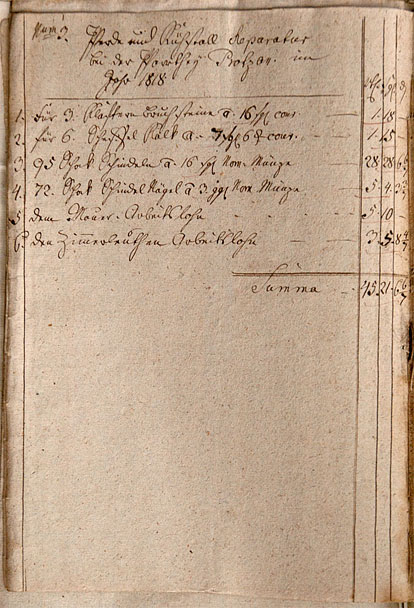 Num 3.
Pferde und Kühstall Reparatur
bei der Parochey im
Jahr 1818
1. Für 3. Klaftern Bruchsteine a 16 cour. 1. 18 –
2. für 6. Scheffel Kalk a 7 6 cour. 1. 15
3. 95 Schok Schindeln a 16 Nom. Münze 28. 28. 6
4. 72. Schok Schindel Nägel a 3 ggl Nom. Münze 5. 4. 3
5 dem Maurer Arbeitslohn 5. 10 –
6. den Zimmerleuthen Arbeitslohn 3. 5. 8
Summa 45. 21. 6